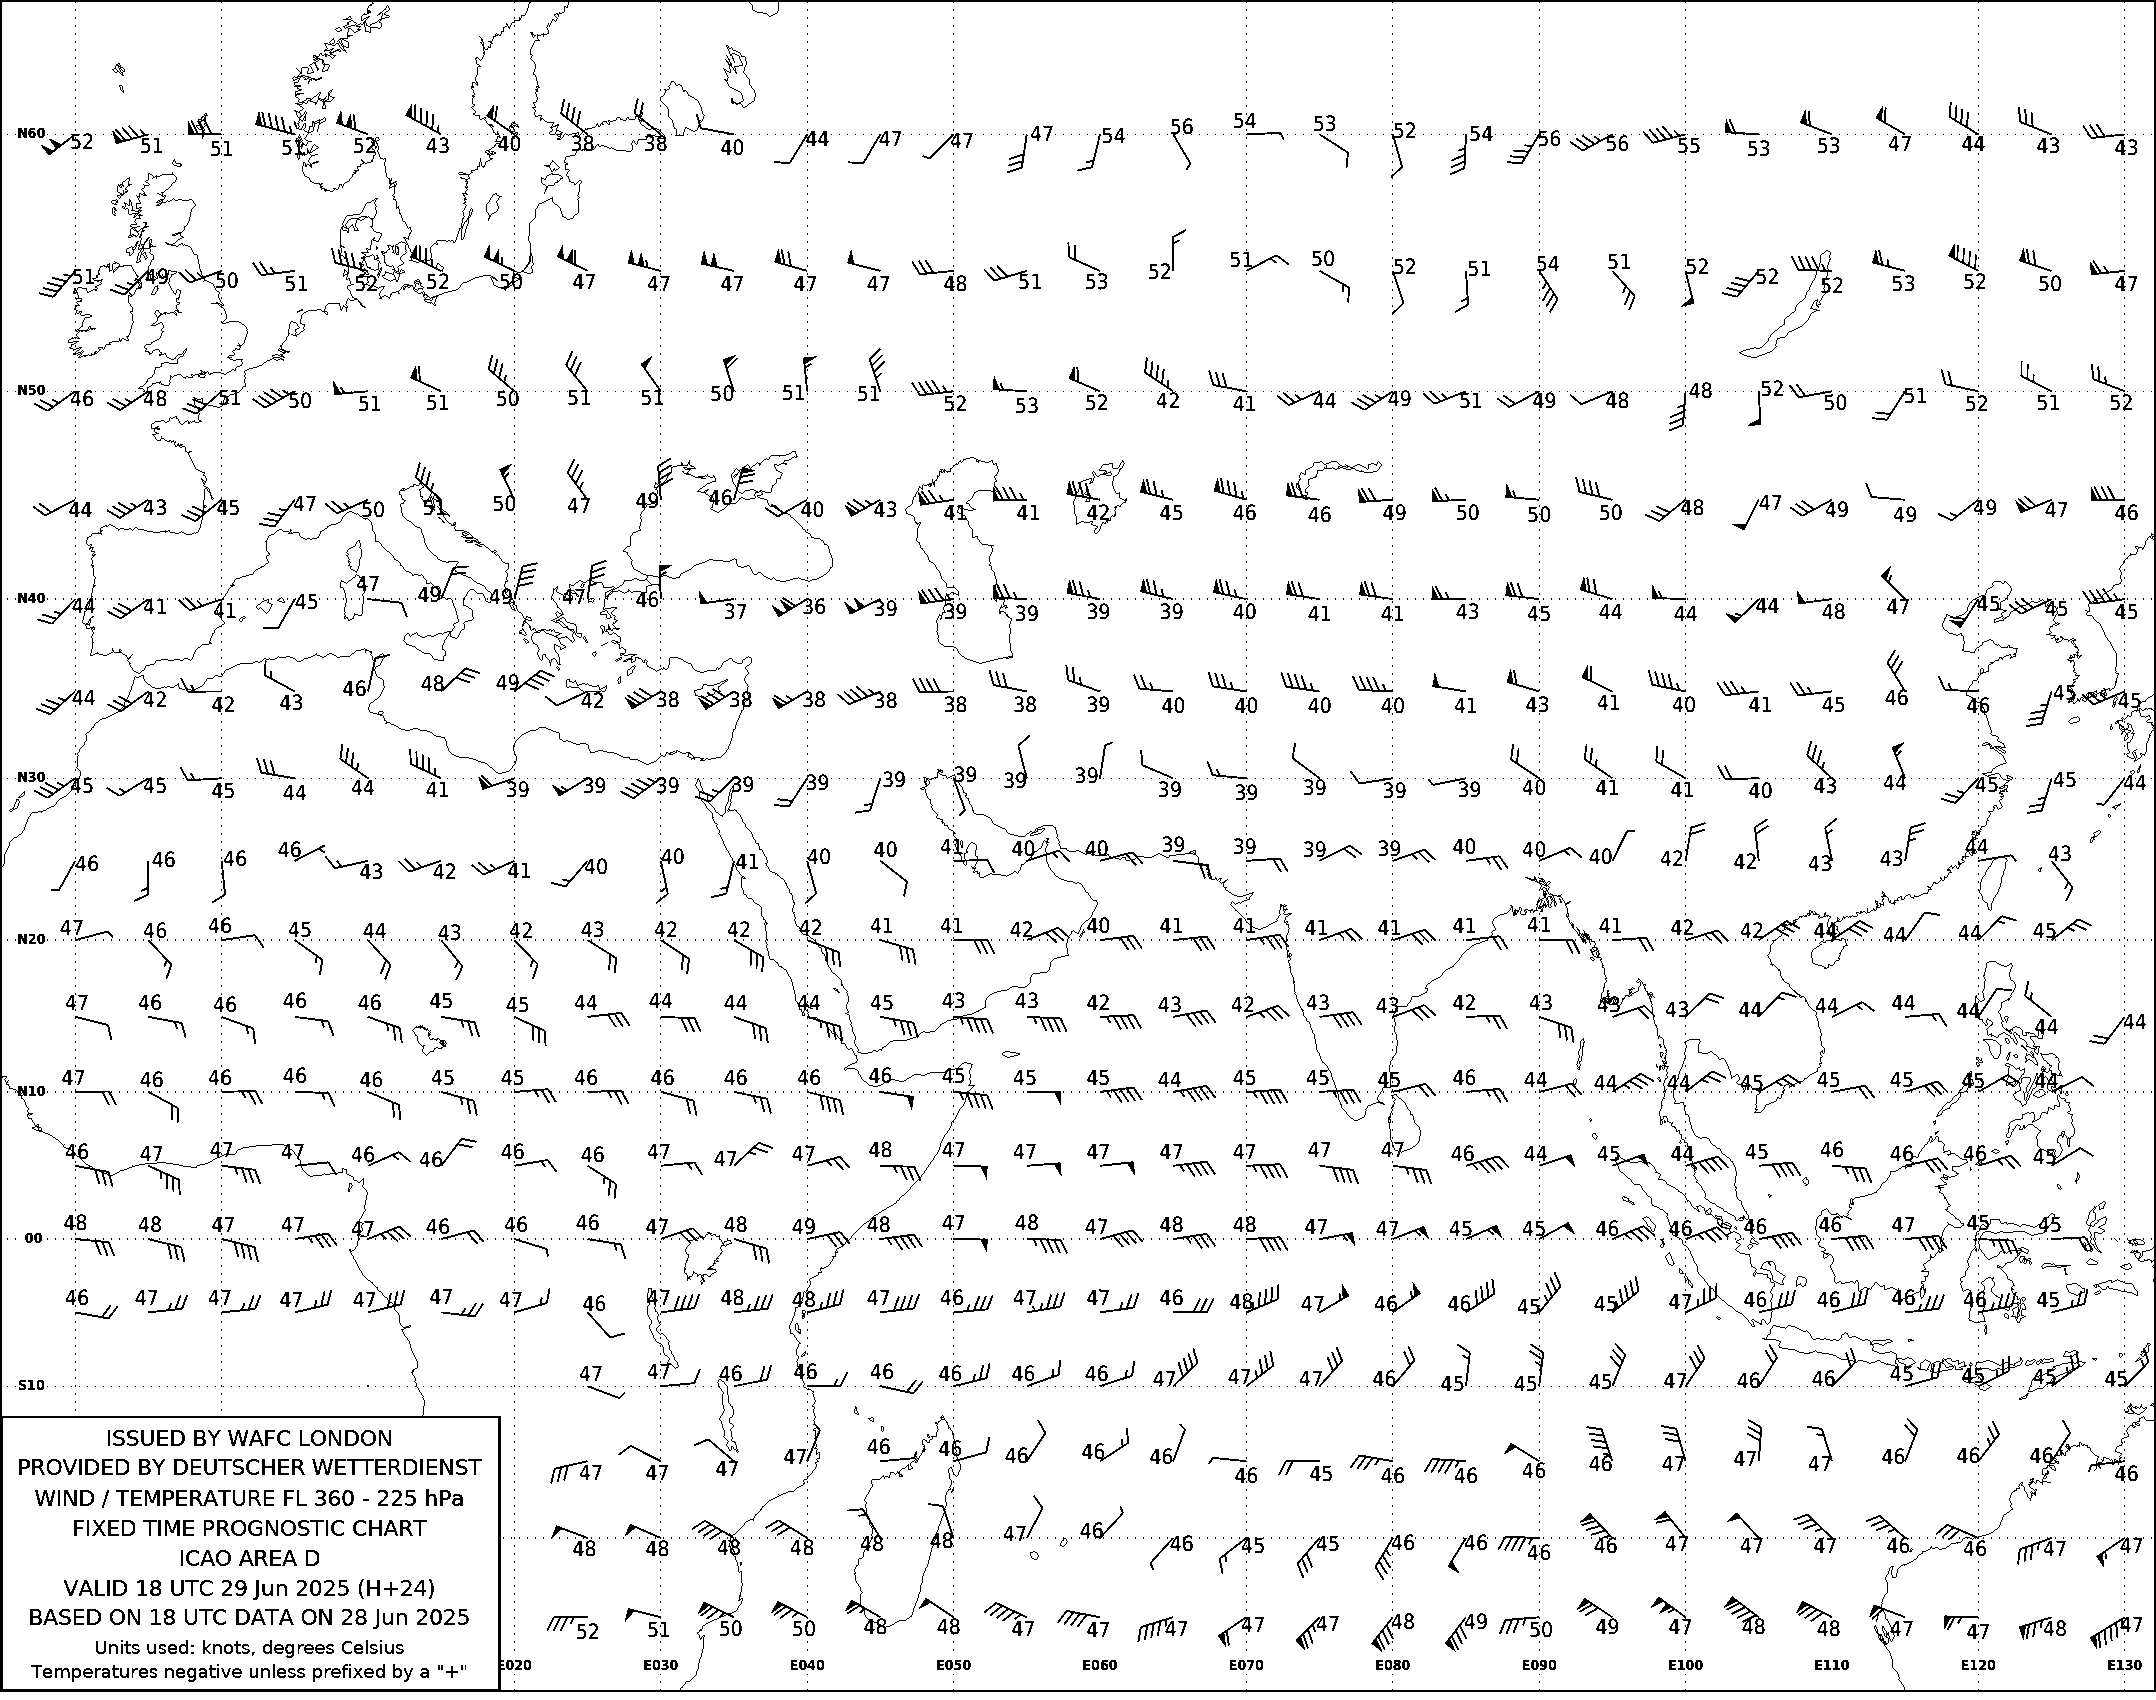 N60 52 51 51 51 52 43 40 38 38 40 44 47 47 47 54 56 54 53 52 54 56 56 55 53 53 47 44 43 43
51 49 50 51 52 52 50 47 47 47 47 47 48 51 53 52 51 50 52 51 54 51 52 52 52 53 52 50 47
N50 46 48 51 50 51 51 50 51 51 50 51 51 52 53 52 42 41 44 49 51 49 48 48 52 50 51 52 51 52
44 43 45 47 50 51 50 47 49 46 40 43 41 41 42 45 46 46 49 50 50 50 48 47 49 49 49 47 46
N40 44 41 41 45 47 49 49 47 46 37 36 39 39 39 39 39 40 41 41 43 45 44 44 44 48 47 45 45 45
44 42 42 43 46 48 49 42 38 38 38 38 38 38 39 40 40 40 40 41 43 41 40 41 45 46 46 45 45
N30 45 45 45 44 44 41 39 39 39 39 39 39 39 39 39 39 39 39 39 39 40 41 41 40 43 44 45 45 44
46 46 46 46 43 42 41 40 40 41 40 40 41 40 40 39 39 39 39 40 40 40 42 42 43 43 44 43
N20 47 46 46 45 44 43 42 43 42 42 42 41 41 42 40 41 41 41 41 41 41 41 42 42 44 44 44 45
47 46 46 46 46 45 45 44 44 44 44 45 43 43 42 43 42 43 43 42 43 45 43 44 44 44 44 44 44
N10 47 46 46 46 46 45 45 46 46 46 46 46 45 45 45 44 45 45 45 46 44 44 44 45 45 45 45 44
46 47 47 47 46 46 46 46 47 47 47 48 47 47 47 47 47 47 47 46 44 45 44 45 46 46 46 45
00 48 48 47 47 47 46 46 46 47 48 49 48 47 48 47 48 48 47 47 45 45 46 46 46 46 47 45 45
46 47 47 47 47 47 47 46 47 48 48 47 46 47 47 46 48 47 46 46 45 45 47 46 46 46 46 45
S10 47 47 46 46 46 46 46 46 47 47 47 46 45 45 45 47 46 46 45 45 45 45
47 47 47 47 46 46 46 46 46 46 45 46 46 46 46 47 47 47 46 46 46 46
48 48 48 48 48 48 47 46 46 45 45 46 46 46 46 47 47 47 46 46 47 47
52 51 50 50 48 48 47 47 47 47 47 48 49 50 49 47 48 48 47 47 48 47
E020 E030 E040 E050 E060 E070 E080 E090 E100 E110 E120 E130
ISSUED BY WAFC LONDON
PROVIDED BY DEUTSCHER WETTERDIENST
WIND / TEMPERATURE FL 360 - 225 hPa
FIXED TIME PROGNOSTIC CHART
ICAO AREA D
VALID 18 UTC 29 Jun 2025 (H+24)
BASED ON 18 UTC DATA ON 28 Jun 2025
Units used: knots, degrees Celsius
Temperatures negative unless prefixed by a "+"